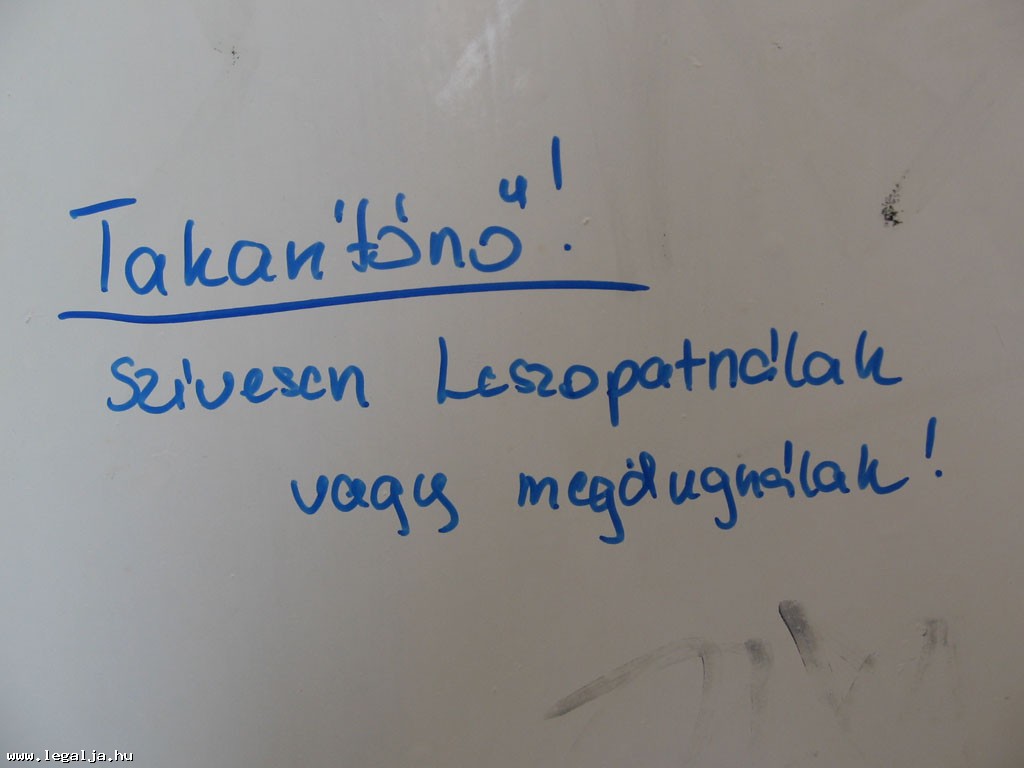 Takarítónő!
Szivesen Leszopatnálak
vagy megdugnálak!
www.legalja.hu